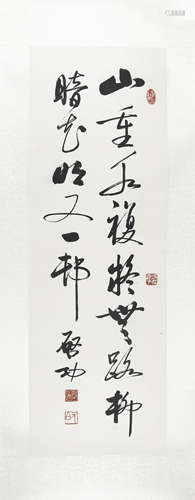 山重水複疑無路柳
暗花明又一邨
啓功